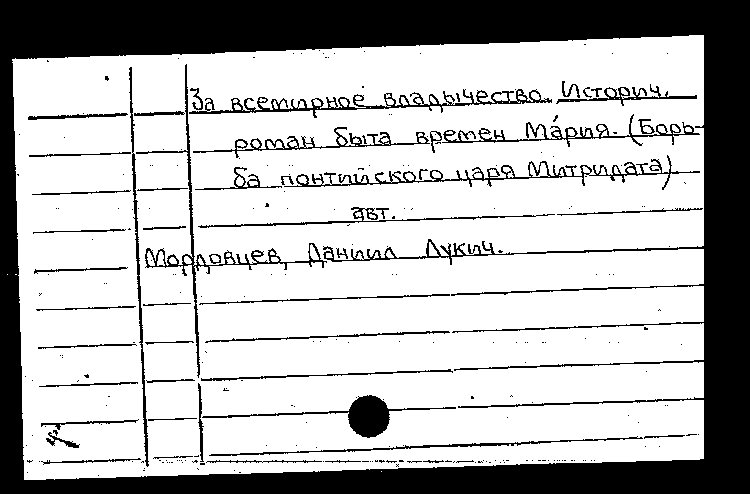 За всемирное владычество. Историч.
роман быта времен Мáрия. (Борь-
ба понтийского царя Митридата)
авт.
Мордовцев, Даниил Лукич.